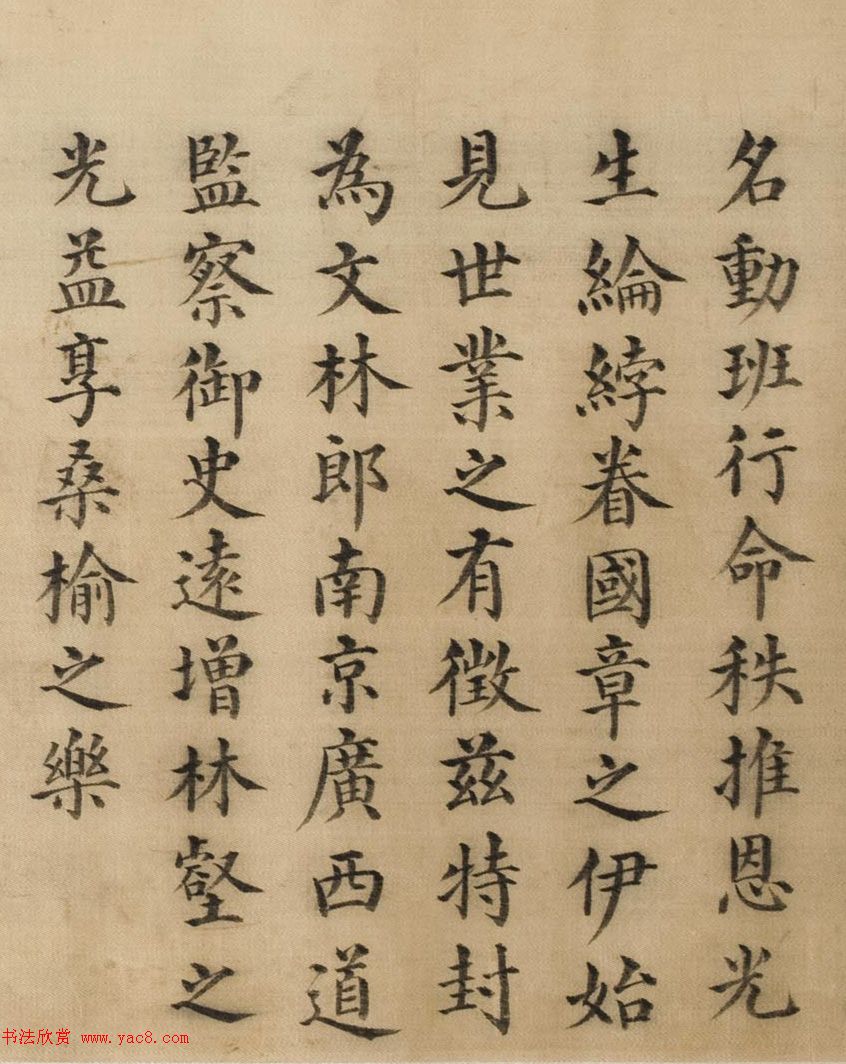 名動班行命秩推恩光
生綸綍眷國章之伊始
見世業之有徵茲特封
為文林郎南京廣西道
監察御史遠增林壑之
光益享桑榆之樂
书法欣赏 www.yac8.com